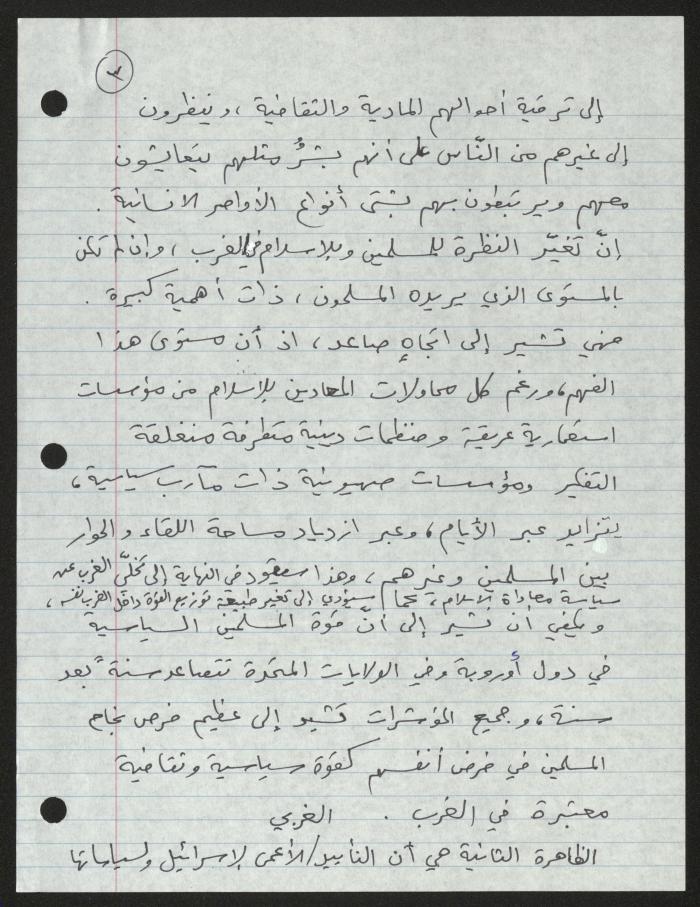 ٣
إلى ترقية أحوالهم المادية والثقافية، وينظرون
إلى غيرهم من النّاس على أنهم بشرٌ مثلهم يتعايشون
معهم ويرتبطون بهم بشتى أنواع الأواصر الانسانية.
إنّ تغيّر النظرة للمسلمين وللإسلام في الغرب، وإن لم تكن
بالمستوى الذي يريده المسلمون، ذات أهمية كبيرة.
فهي تشير إلى اتجاهٍ صاعد، اذ أن مستوى هذا
الفهم، ورغم كل محاولات المعادين للإسلام من مؤسسات
استعمارية عريقة ومنظمات دينية متطرفة منغلقة
التفكير ومؤسسات صهيونية ذات مآرب سياسية،
يتزايد عبر الأيام، وعبر ازدياد مساحة اللقاء والحوار
بين المسلمين وغيرهم، وهذا سيقود في النهاية إلى تخلّي الغرب عن
سياسة معاداة الإسلام، كما سيؤدي إلى تغير طبيعة توزيع القوة داخل الغرب نفسه،
ويكفي أن نشير إلى أنّ قوة المسلمين السياسية
في دول أوروبة وفي الولايات المتحدة تتصاعد سنة بعد
سنة، وجميع المؤشرات تشير إلى عظيم فرص نجاح
المسلمين في فرض أنفسهم كقوة سياسية وثقافية
معتبرة في الغرب. الغربي
الظاهرة الثانية هي أن التأييد/الأعمى لإسرائيل ولسياساتها